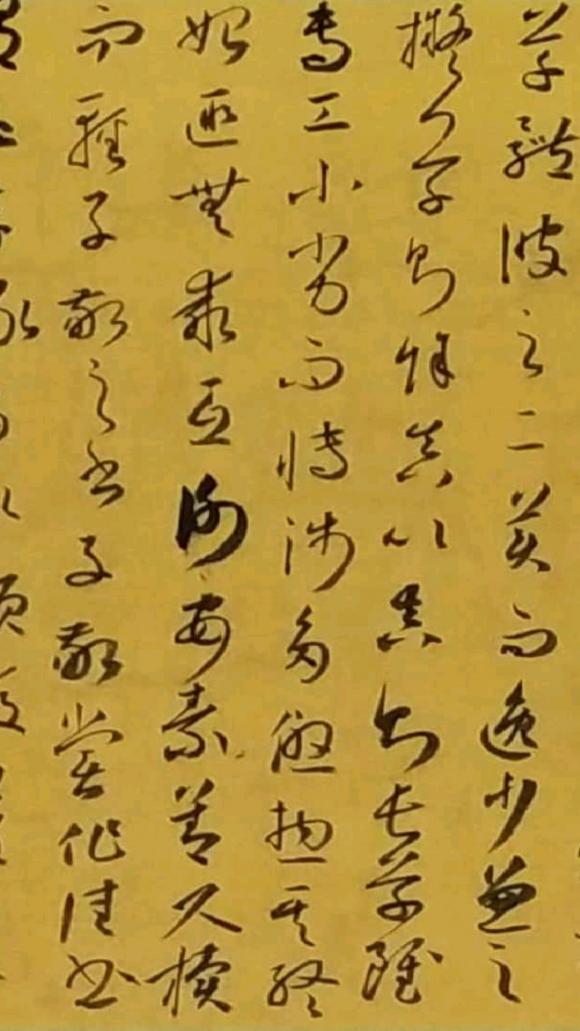 草體彼之二美而逸少兼之
擬草則餘真比真則長草雖
專工小劣而博涉多優揔其終
始匪無乖互謝安素善尺牘
而輕子敬之書子敬嘗作佳書